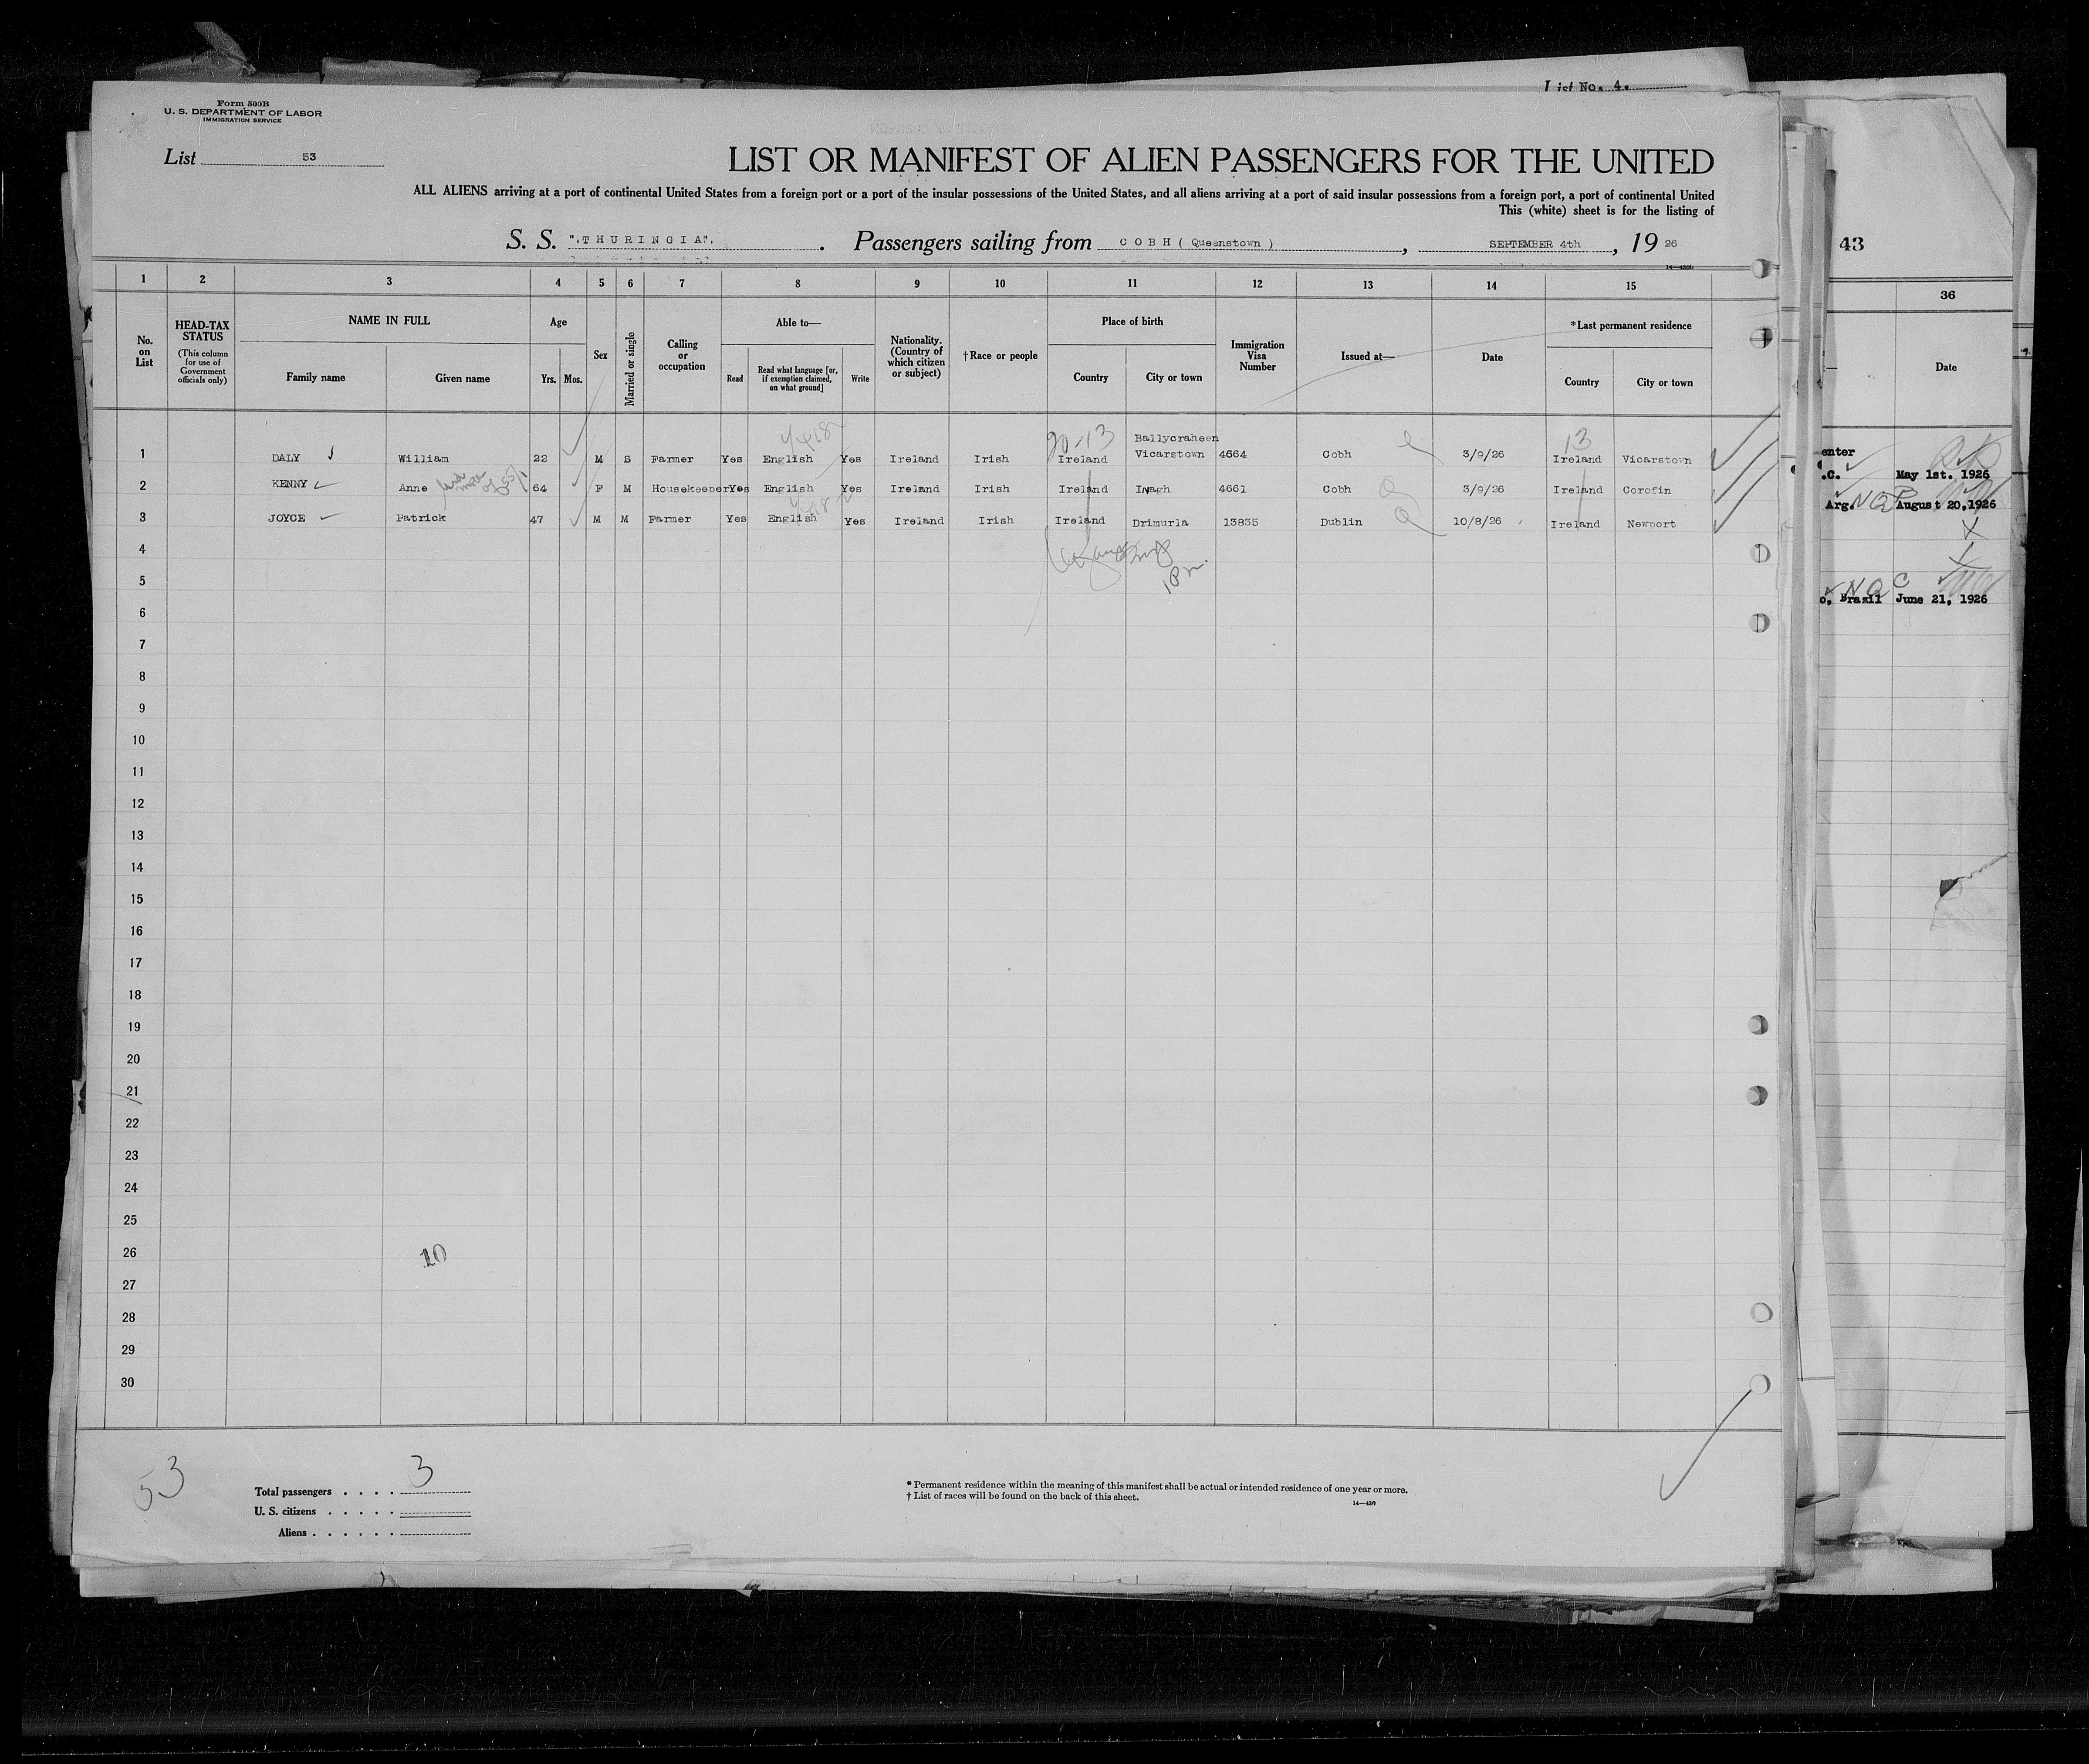 List No. 4.
Form 500B
U. S. DEPARTMENT OF LABOR
IMMIGRATION SERVICE
List 53
LIST OR MANIFEST OF ALIEN PASSENGERS FOR THE UNITED
ALL ALIENS arriving at a port of continental United States from a foreign port or a port of the insular possessions of the United States, and all aliens arriving at a port of said insular possessions from a foreign port, a port of continental United
This (white) sheet is for the listing of
S. S. ".THURINGIA". . Passengers sailing from COBH ( Queenstown ) , SEPTEMBER 4th , 19 26
43
1 2 3 4 5 6 7 8 9 10 11 12 13 14 15
36
No. on List
HEAD-TAX STATUS
(This column for use of Government officials only)
NAME IN FULL
Family name Given name
Age
Yrs. Mos.
Sex
Married or single
Calling or occupation
Able to—
Read Read what language [or, if exemption claimed, on what ground] Write
Nationality. (Country of which citizen or subject)
†Race or people
Place of birth
Country City or town
Immigration Visa Number
Issued at—
Date
*Last permanent residence
Country City or town
Date
20-13 Ballycraheen 13
1 DALY William 22 M S Farmer Yes English Yes Ireland Irish Ireland Vicarstown 4664 Cobh 3/9/26 Ireland Vicarstown
2 KENNY Anne 64 F M Housekeeper Yes English Yes Ireland Irish Ireland Inagh 4661 Cobh 3/9/26 Ireland Corofin
3 JOYCE Patrick 47 M M Farmer Yes English Yes Ireland Irish Ireland Drimurla 13835 Dublin 10/8/26 Ireland Newport
4
5
6
7
8
9
10
11
12
13
14
15
16
17
18
19
20
21
22
23
24
25
26
10
27
28
29
30
enter
.C. May 1st. 1926
Arg. August 20,1926
o, Brasil June 21, 1926
53
Total passengers . . . . 3
U. S. citizens . . . . .
Aliens . . . . . .
* Permanent residence within the meaning of this manifest shall be actual or intended residence of one year or more.
† List of races will be found on the back of this sheet.
14—430